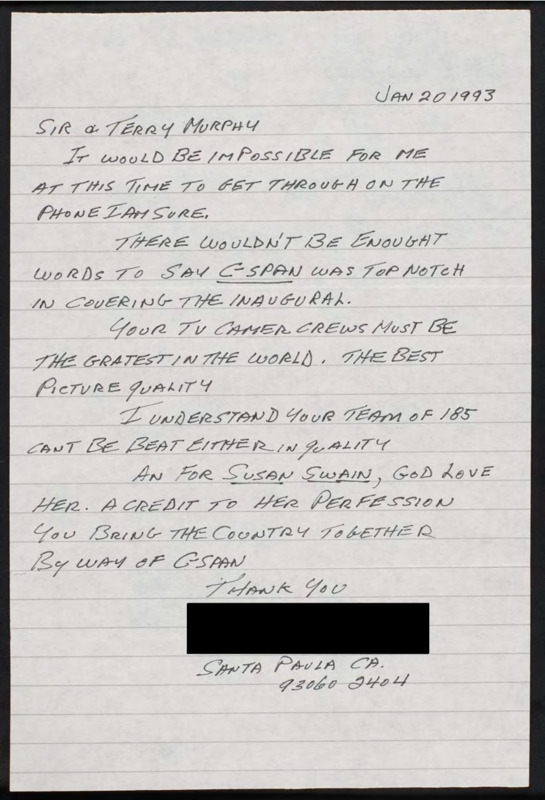 JAN 20 1993
SIR & TERRY MURPHY
IT WOULD BE IMPOSSIBLE FOR ME
AT THIS TIME TO GET THROUGH ON THE
PHONE I AM SURE.
THERE WOULDN'T BE ENOUGHT
WORDS TO SAY C-SPAN WAS TOP NOTCH
IN COVERING THE INAUGURAL.
YOUR TV CAMER CREWS MUST BE
THE GRATEST IN THE WORLD. THE BEST
PICTURE QUALITY
I UNDERSTAND YOUR TEAM OF 185
CANT BE BEAT EITHER IN QUALITY
AN FOR SUSAN SWAIN, GOD LOVE
HER. A CREDIT TO HER PERFESSION
YOU BRING THE COUNTRY TOGETHER
BY WAY OF C-SPAN
THANK YOU
SANTA PAULA CA.
93060 2404